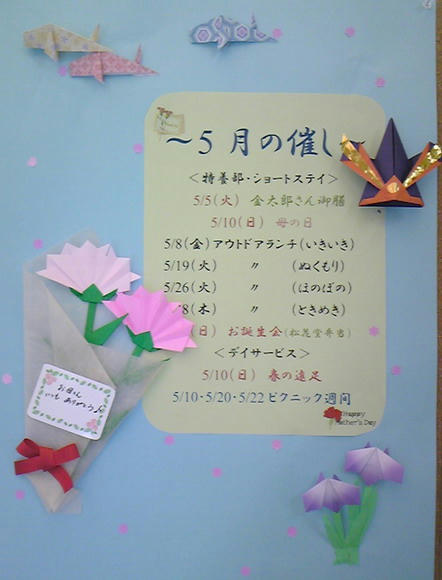 ~5月の催し~
<特養部・ショートステイ>
5/5(火) 金太郎さん御膳
5/10(日) 母の日
5/8(金)アウトドアランチ(いきいき)
5/19(火) 〃 (ぬくもり)
5/26(火) 〃 (ほのぼの)
8(木) 〃 (ときめき)
(日) お誕生会(松花堂弁当)
<デイサービス>
5/10(日) 春の遠足
5/10・5/20・5/22 ピクニック週間
Happy
Mother's Day
お母さん
いつも ありがとう